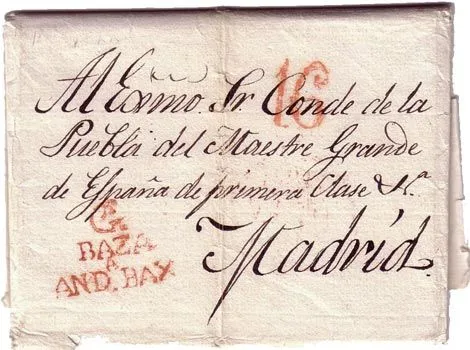 Al Exmo. Sr. Conde de la
16
Puebla del Maestre Grande
de España de primera Clase &.ª
Madrid.
BAZA
AND. BAX